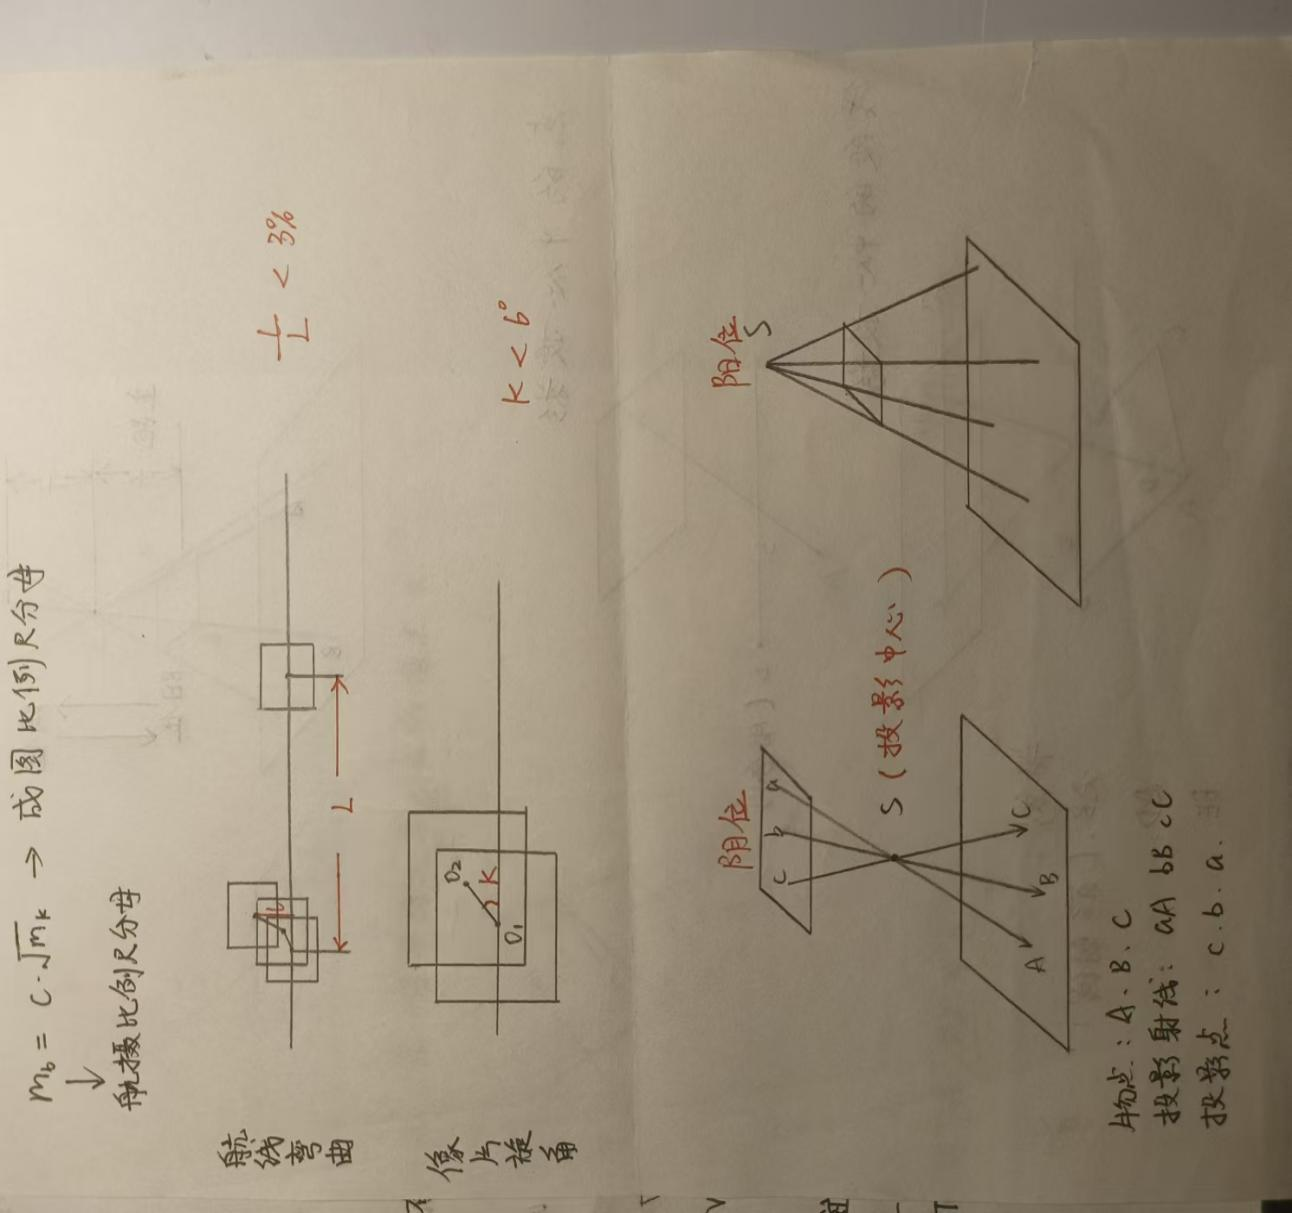 m_b = C·√m_k → 成图比例尺分母
↓
航摄比例尺分母
航线弯曲
L
l/L < 3%
像片旋角
O₂
K
O₁
K < 6°
阴位
a
b
c
S（投影中心）
A
B
C
阳位
S
物点：A、B、C
投影射线：aA bB cC
投影点：c、b、a.